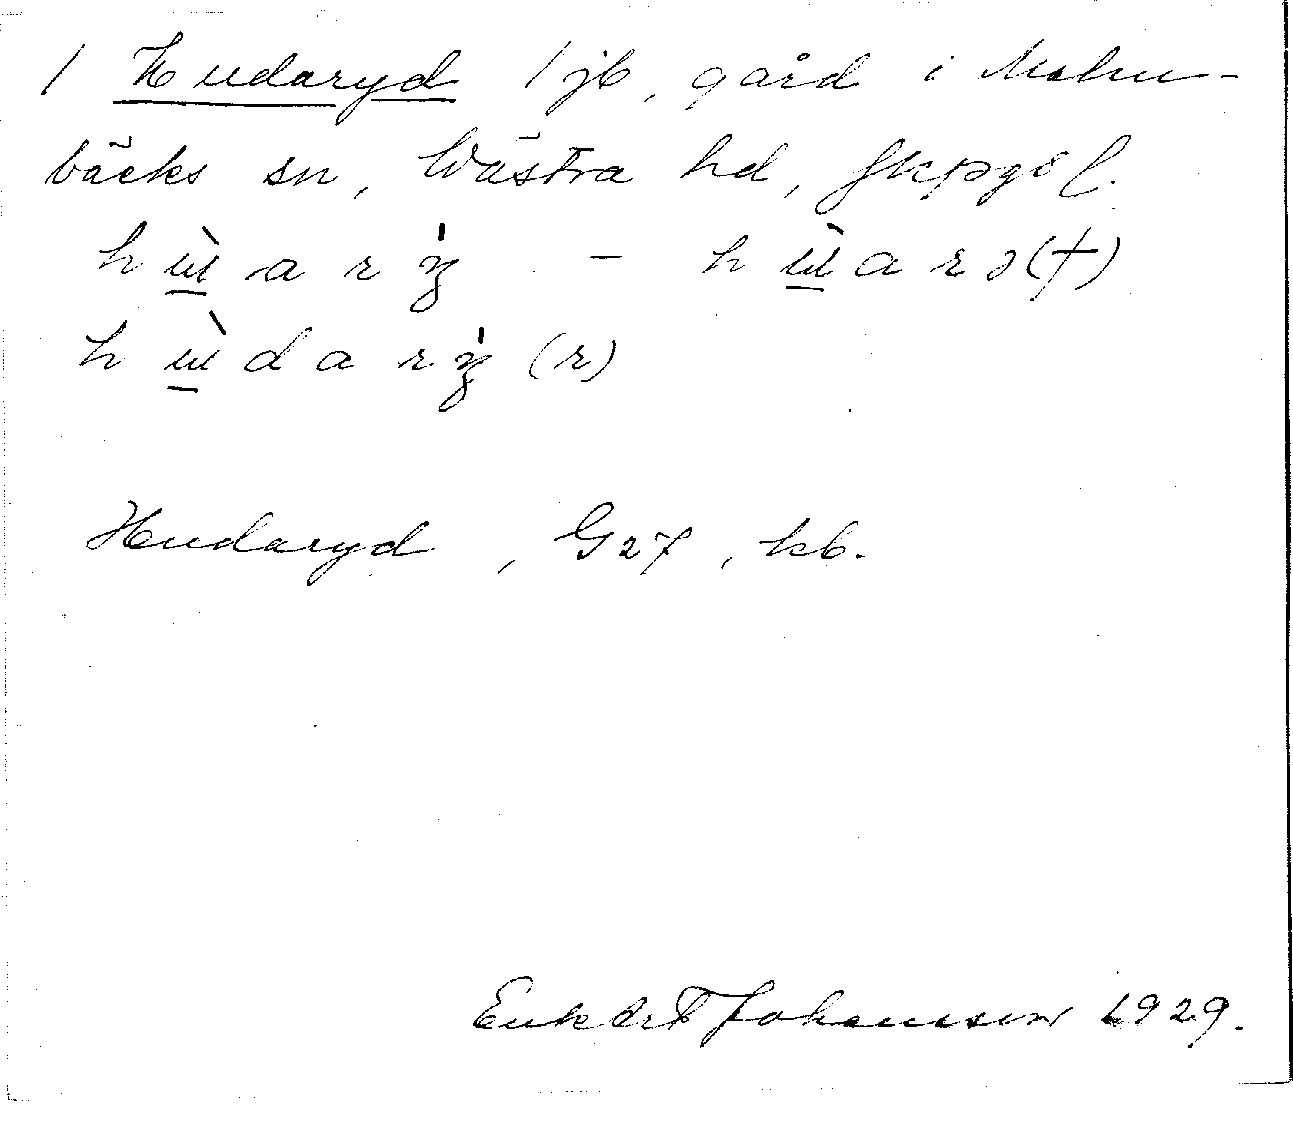 / Hudaryd 1 jb, gård i Malm-
bäcks sn, Västra hd, Jkpgs l.
h ɯ̀ a r y̍ – h ɯ̀ a r ə (†)
h ɯ̀ d a r y̍ (r)
Hudaryd, G 27, kb.
Johansson 1929.